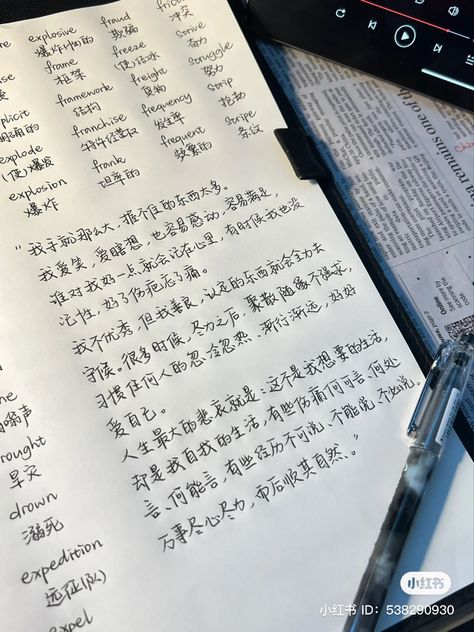 explosive
爆炸(性)的
frame
框架
framework
结构
franchise
特许经营权
frank
坦率的
fraud
欺骗
freeze
(使)结冰
freight
货物
frequency
发生率
frequent
频繁的
冲突
strive
奋力
struggle
努力
strip
stripe
条纹
plicit
explode
(使)爆发
explosion
爆炸
"我手就那么大，握不住的东西太多。
我爱笑，爱瞎想，也容易感动，容易满足，
谁对我好一点就会记在心里，有时候我也没
记性，好了伤疤忘了痛。
我不优秀，但我善良，认定的东西就会全力去
守候。很多时候，尽力之后，聚散随缘不强求，
习惯任何人的忽冷忽热、渐行渐远，好好
爱自己。
人生最大的悲哀就是：这不是我想要的生活，
却是我自找的生活，有些伤痛何可言、何处
言、何能言，有些经历不可说、不能说、不必说。
万事尽心尽力，而后顺其自然。"
rought
旱灾
drown
溺死
expedition
远征(队)
expel
remains one of th
Online
小红书
小红书 ID: 538290930